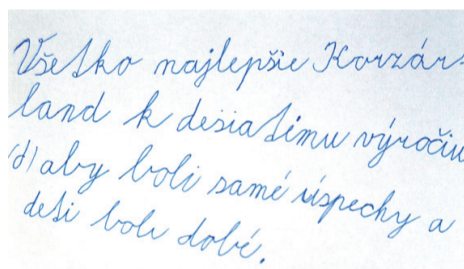 Všetko najlepšie Korzár-
land k desiatimu výročiu
(d) aby boli samé úspechy a
deti boli dobé.